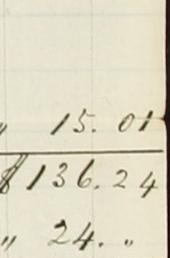 " 15. 01
$136.24
" 24. "